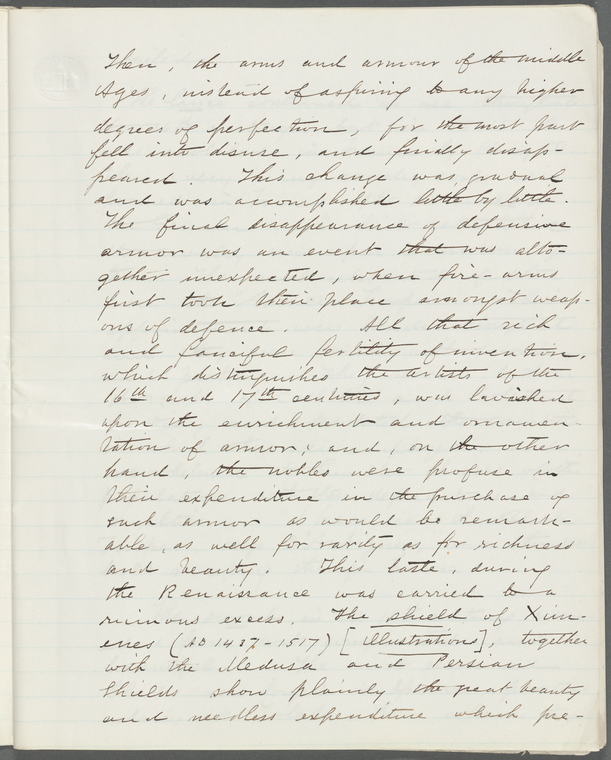 Then, the arms and armour of the middle
Ages, instead of aspiring to any higher
degrees of perfection, for the most part
fell into disuse, and finally disap-
peared. This change was gradual
and was accomplished little by little.
The final disappearance of defensive
armor was an event that was alto-
gether unexpected, when fire-arms
first took their place amongst weap-
ons of defence. All that rich
and fanciful fertility of invention,
which distinguishes the artists of the
16th and 17th centuries, was lavished
upon the enrichment and ornamen-
tation of armor; and, on the other
hand, the nobles were profuse in
their expenditure in the purchase of
such armor as would be remark-
able, as well for rarity as for richness
and beauty. This taste, during
the Renaissance was carried to a
ruinous excess. The shield of Xim-
enes (AD 1437-1517) [illustrations], together
with the Medusa and Persian
Shields show plainly the great beauty
and needless expenditure which pre-